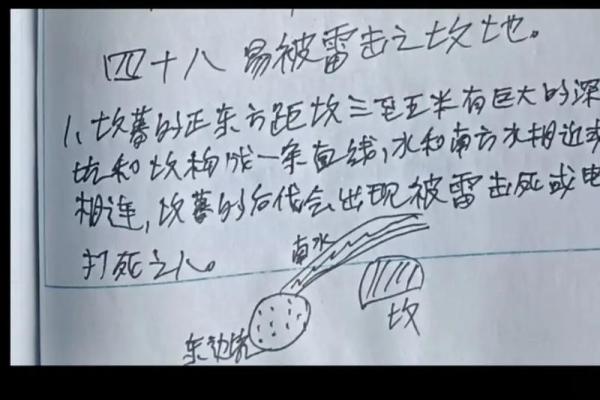 四十八 易被雷击之坟地。
1、坟墓的正东方距坟三至五米有巨大的深
坑和坟构成一条直线,水和南方水相近或
相连,坟墓的后代会出现被雷击死或电
打死之人。
南水
东边坑
坟